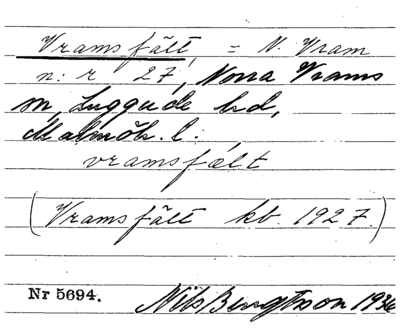 Vramsfält = N. Vram
n:r 27, Norra Vrams
sn, Luggude hd,
Malmöh. l.
vramsfált
(Vramsfält kb. 1927.)
Nr 5694. Nils Bengtsson 1936